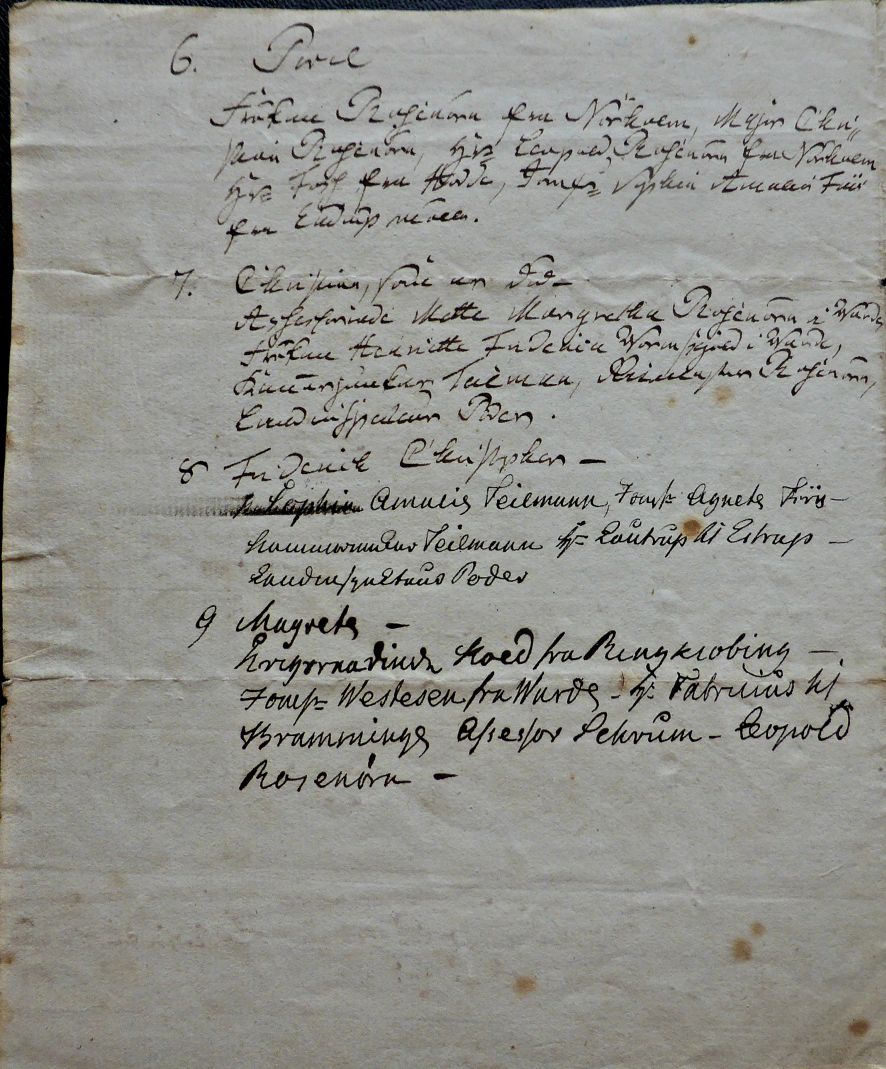 6. Povel
Frøken Rosenörn fra Nörholm, Major Chri=
stian Rosenörn, Hr= Leopold Rosenörn fra Nörholm
Hr= fra Hodde, Jomf= Sophia Amalia Friis
fra Endrup
7. Christian, som er död
Mette Margretha Rosenörn i Warde
Fröken Henriette Friderica Wormskjold i Warde,
Kammerjunker Teilman, Rosenörn,
Landinspecteur Poder.
8 Friderich Christopher —
Sophia Amalia Teilmann, Jomf= Agneta Friis —
Kammerraad Teilmann Hr= Lautrup til Estrup —
Landinspecteus Poder
9 Magrete —
Krigsraadinde Hoed fra Ringkiobing —
Jomf= Westesen fra Warde — Hr: Fabricius til
Bramminge Assessor Schrum — Leopold
Rosenørn —